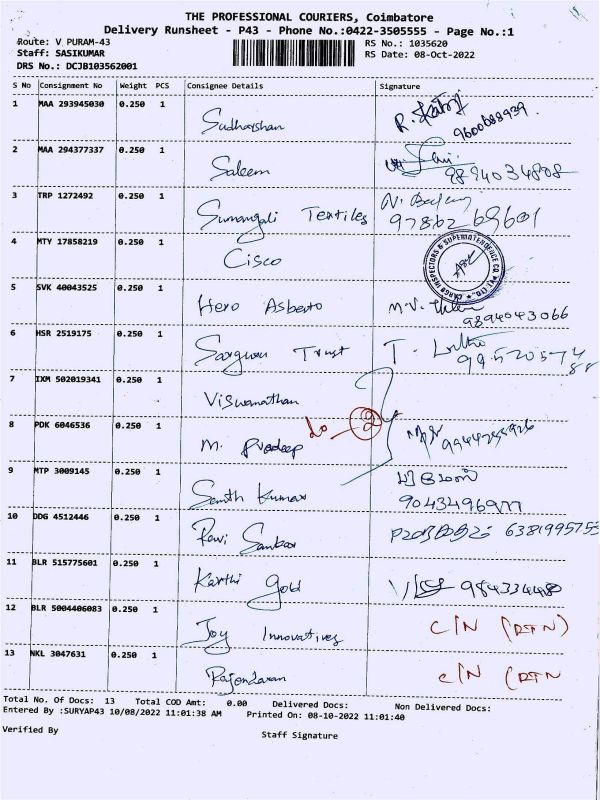 THE PROFESSIONAL COURIERS, Coimbatore
Delivery Runsheet - P43 - Phone No.:0422-3505555 - Page No.:1
Route: V PURAM-43 RS No.: 1035620
Staff: SASIKUMAR RS Date: 08-Oct-2022
DRS No.: DCJB103562001
S No Consignment No Weight PCS Consignee Details Signature
1 MAA 293945030 0.250 1 Sudharshan R. 9600688939.
2 MAA 294377337 0.250 1 Saleem 9894034808
3 TRP 1272492 0.250 1 Sumangali Textiles N. 9786269601
4 MTY 17858219 0.250 1 Cisco CARGO INSPECTORS & SUPERINTENDENCE CO. PVT. LTD.
5 SVK 40043525 0.250 1 Hero Asberto M.V. 9894043066
6 HSR 2519175 0.250 1 Trust T.
7 IXM 502019341 0.250 1 Viswanathan
8 PDK 6046536 0.250 1 M. Pradeep
9 MTP 3009145 0.250 1 Kumar
10 DDG 4512446 0.250 1 Ravi Sankar 638199575
11 BLR 515775601 0.250 1 Karthi Gold
12 BLR 5004406083 0.250 1 Joy Innovatives C/N (RTN)
13 NKL 3047631 0.250 1 Rajendaran C/N (RTN
Total No. Of Docs: 13 Total COD Amt: 0.00 Delivered Docs: Non Delivered Docs:
Entered By :SURYAP43 10/08/2022 11:01:38 AM Printed On: 08-10-2022 11:01:40
Verified By Staff Signature